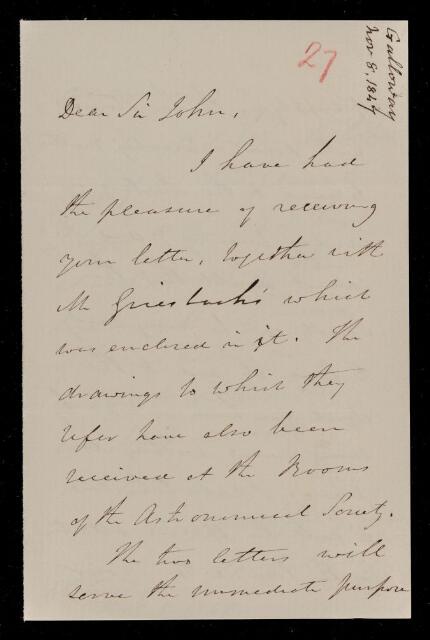 27
Galloway
Nov 8. 1847
Dear Sir John,
I have had
the pleasure of receiving
your letter, together with
Mr Griesbach's which
was enclosed in it. The
drawings to which they
refer have also been
received at the Rooms
of the Astronomical Society.
The two letters will
serve the immediate purpose